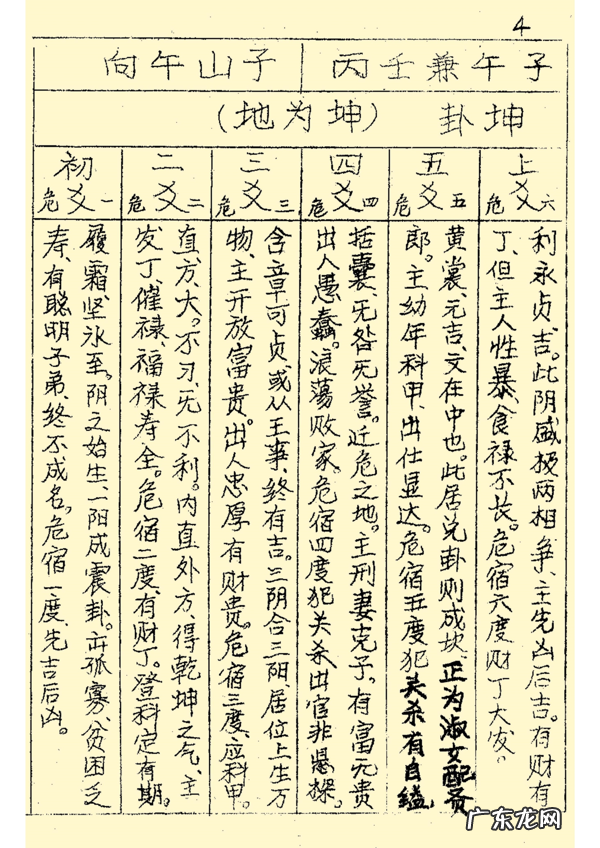 4
子午兼壬丙
子山午向
坤卦
(坤为地)
上爻 危六
利永贞、吉。此阴盛极两相争、主先凶后吉。有财有
丁、但主人性暴、食禄不长。危宿六度财丁大发。
五爻 危五
黄裳、元吉、文在中也。此居兑卦则成坎、正为淑女配贤
郎。主幼年科甲、出仕显达。危宿五度犯关杀有自缢
四爻 危四
括囊、无咎无誉。近危之地。主刑妻克子。有富无贵
出人愚蠢。浪荡败家。危宿四度犯关杀出官非
三爻 危三
含章可贞、或从王事、终有吉。三阴合三阳、居位上生万
物、主开放富贵。出人忠厚有财贵。危宿三度、应科甲。
二爻 危二
直、方、大。不习、无不利。内直外方、得乾坤之气、主
发丁、催禄、福禄寿全。危宿二度、有财丁。登科定有期。
初爻 危一
履霜坚冰至。阴之始生、一阳成震卦。亦孤寡、贫困乏
寿、有聪明子弟、终不成名。危宿一度、先吉后凶。
广东龙网